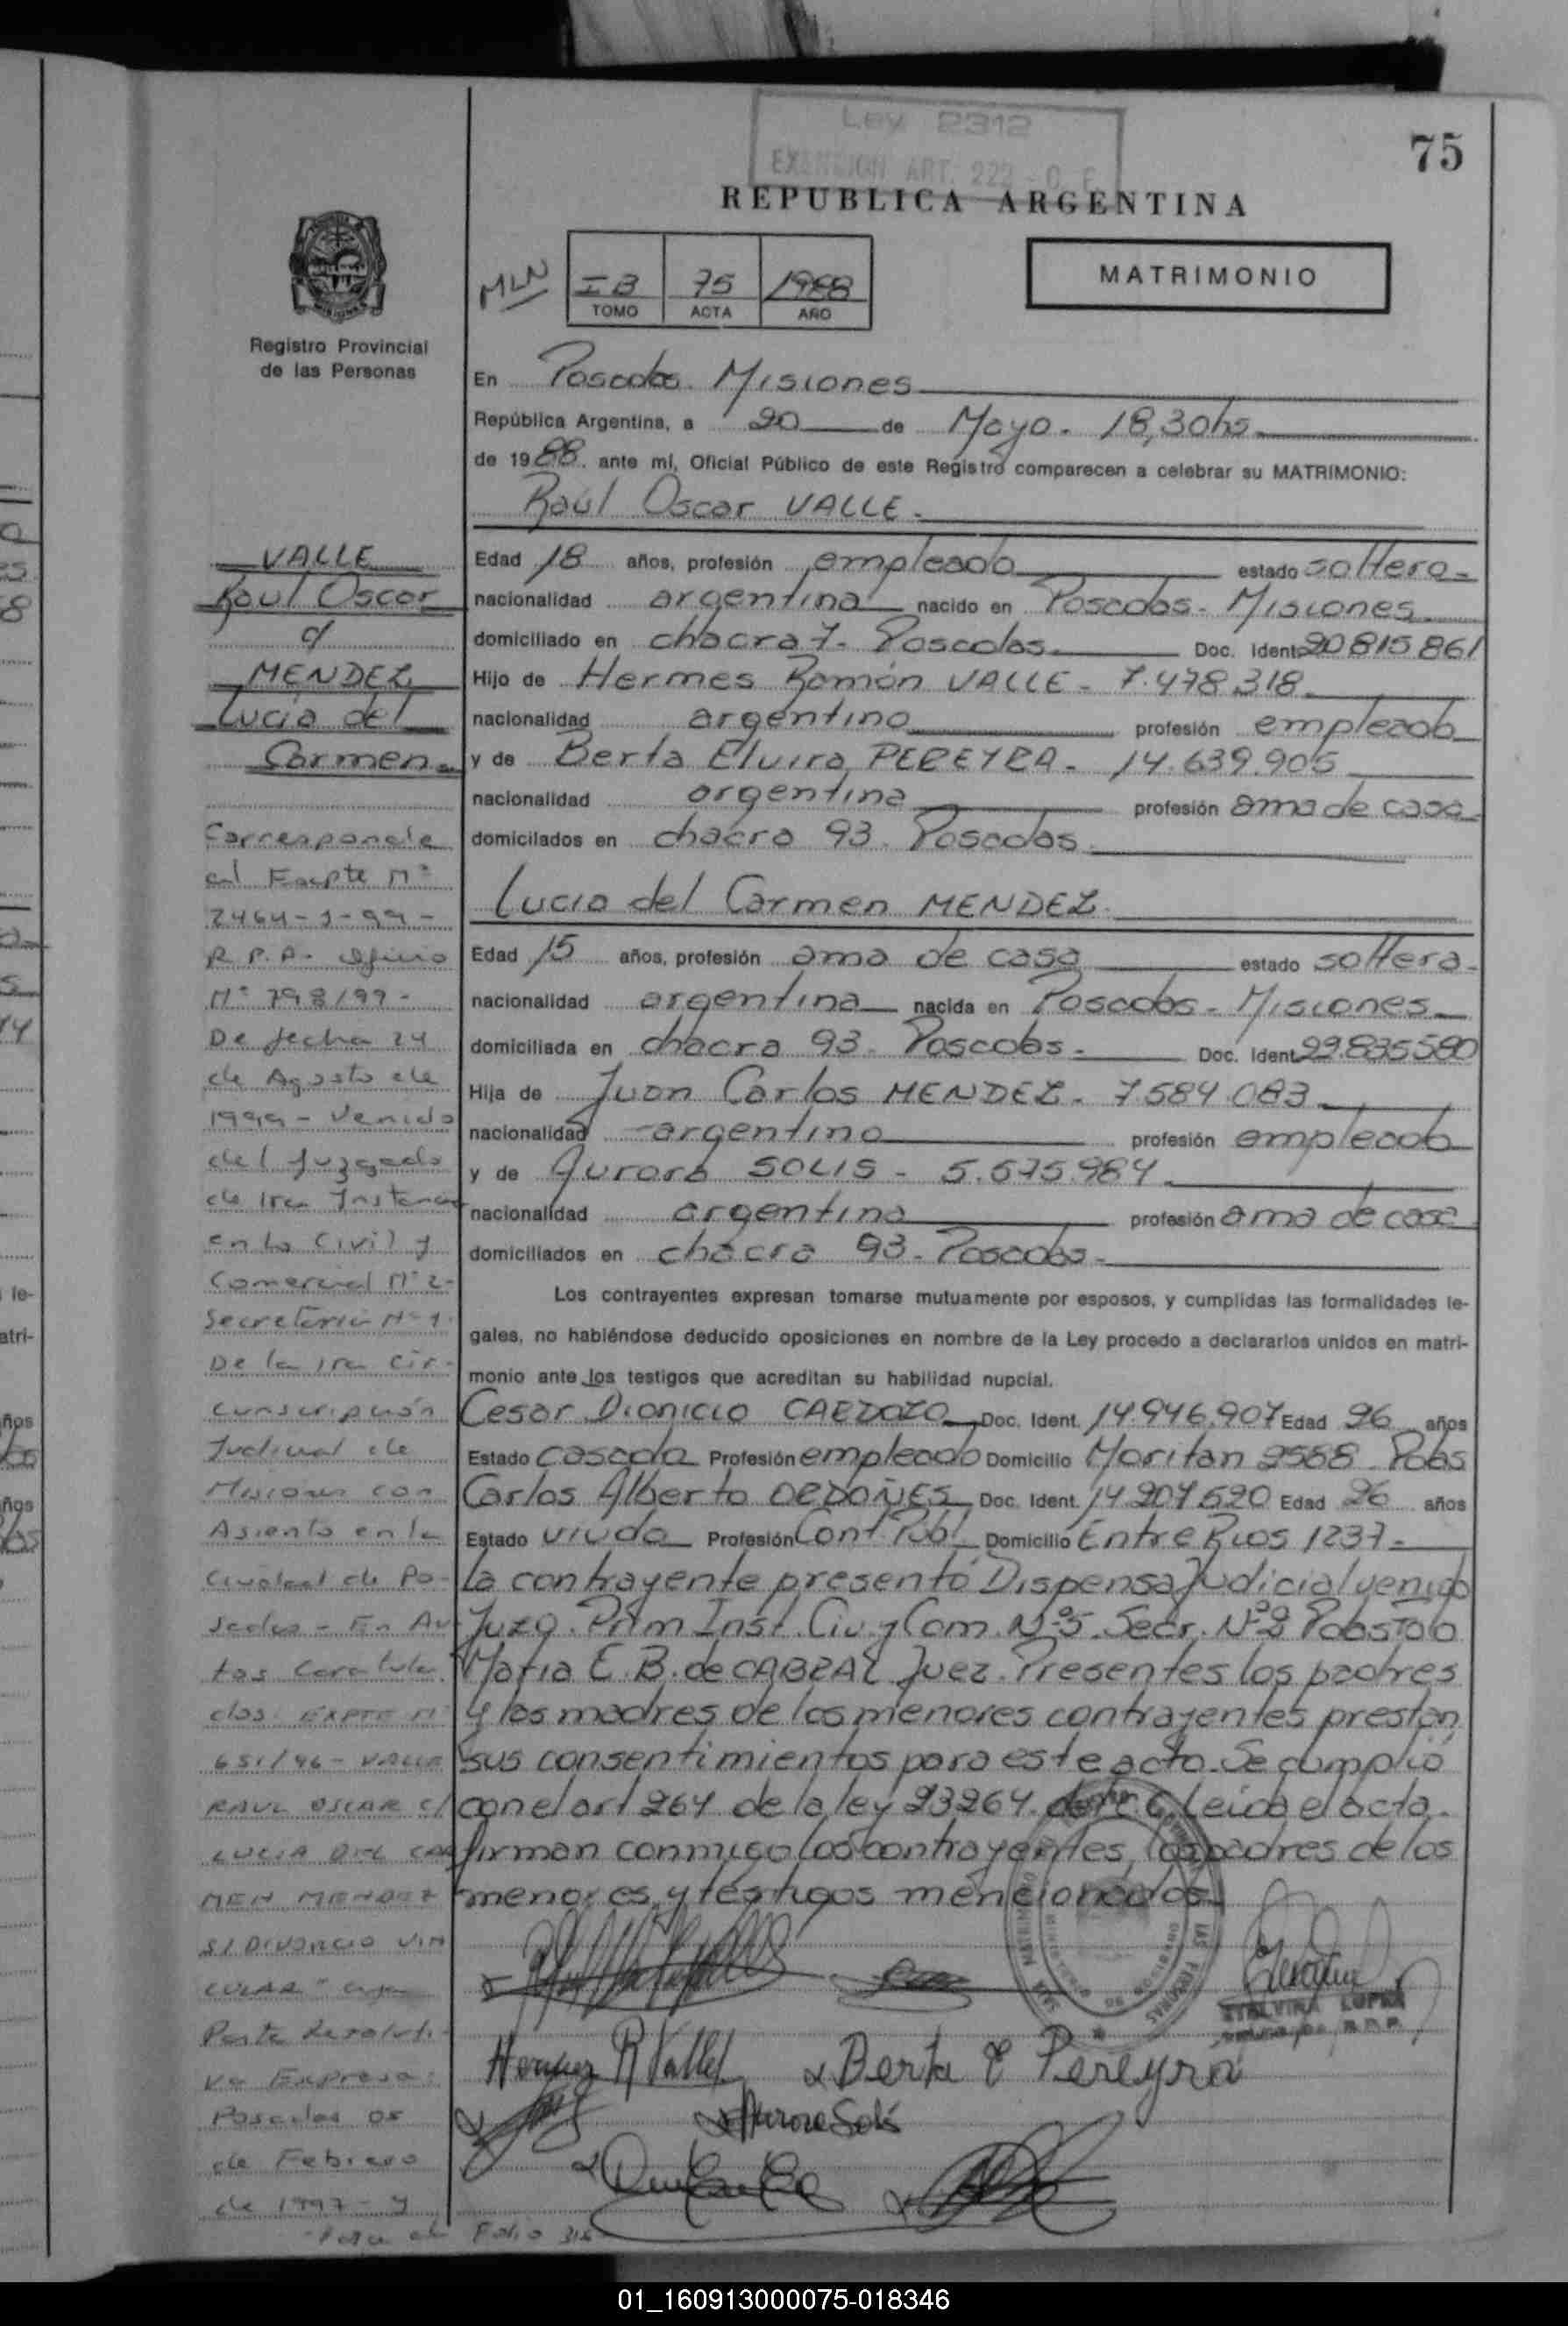 Ley 2312
75
REPUBLICA ARGENTINA
Registro Provincial
de las Personas
MLN
I B 75 1988
TOMO ACTA AÑO
MATRIMONIO
En Posadas. Misiones
República Argentina, a 20 de Mayo. 18,30hs.
de 1988. ante mí, Oficial Público de este Registro comparecen a celebrar su MATRIMONIO:
Raúl Oscar VALLE.
Edad 18 años, profesión empleado estado soltero-
nacionalidad argentina nacido en Posadas - Misiones
domiciliado en chacra 7. Posadas Doc. Ident. 20815861
Hijo de Hermes Ramón VALLE - 7.478.318.
nacionalidad argentino profesión empleado
y de Berta Elvira PEREYRA - 14.639.905
nacionalidad argentina profesión ama de casa-
domicilados en chacra 93. Posadas.
Lucia del Carmen MENDEZ.
Edad 15 años, profesión ama de casa estado soltera-
nacionalidad argentina nacida en Posadas - Misiones
domiciliada en chacra 93. Posadas. Doc. Ident. 22.835580
Hija de Juan Carlos MENDEZ. 7584.083
nacionalidad argentino profesión empleado
y de Aurora SOLIS - 5.675.984
nacionalidad argentina profesión ama de casa
domiciliados en chacra 93 - Posadas.
Los contrayentes expresan tomarse mutuamente por esposos, y cumplidas las formalidades le-
gales, no habiéndose deducido oposiciones en nombre de la Ley procedo a declararlos unidos en matri-
monio ante los testigos que acreditan su habilidad nupcial.
Cesar Dionicio CARDOZO Doc. Ident. 14.946.907 Edad 26 años
Estado casado Profesión empleado Domicilio Moritan 2588 Pdas
Carlos Alberto ORDOÑES Doc. Ident. 14 207 520 Edad 26 años
Estado viudo Profesión Cont. Públ. Domicilio Entre Rios 1237.
La contrayente presentó Dispensa Judicial venido
Juzg. Prim Inst. Civ. y Com. Nº5. Secr. Nº2
Maria E. B. de CABRAL Juez. Presentes los padres
y las madres de los menores contrayentes prestan
sus consentimientos para este acto. Se cumplió
con el art 264 de la ley 23264. Leída el acta.
firman conmigo los contrayentes, los padres de los
menores, y testigos mencionados.
Hermes R Valle
Berta E Pereyra
Aurora Solis
ETELVINA LOPEZ
VALLE
Raul Oscar
c/
MENDEZ
Lucia del
Carmen
Corresponde
al Expte Nº
2464-J-99-
R.P.P. Oficio
Nº 798/99-
De fecha 24
de Agosto de
1999 - Venido
del Juzgado
de 1ra Instancia
en lo Civil y
Comercial Nº 2-
Secretaria Nº 1.
De la 1ra Cir-
cunscripción
Judicial de
Misiones con
Asiento en la
Ciudad de Po-
sadas - En Au-
tos Caratula-
dos: EXPTE Nº
651/96 - VALLE
RAUL OSCAR c/
LUCIA DEL CAR
MEN MENDEZ
S/ DIVORCIO VIN
CULAR" cuya
Parte Resoluti-
va Expresa:
Posadas 05
de Febrero
de 1997 - y
Pasa al Folio 316
01_160913000075-018346